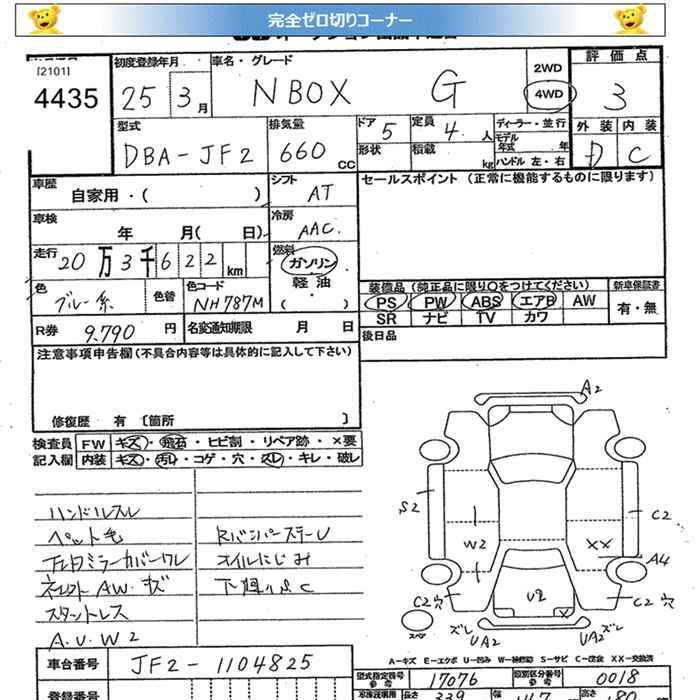 完全ゼロ切りコーナー
[2101]
4435
初度登録年月
25 3月
車名・グレード
N BOX G
2WD
4WD
評価点
3
型式
DBA-JF2
排気量
660 CC
ドア 5
形状
定員 4 人
積載 kg
ディーラー・並行
モデル年式 年
ハンドル 左・右
外装 内装
D C
車歴
自家用・( )
シフト
AT
セールスポイント (正常に機能するものに限ります)
車検
年 月( 日)
冷房
AAC
走行
20万3千622km
燃料
ガソリン
軽油
・( )
色
ブルー系
色替
色コード
NH787M
装備品 (純正品に限り○をつけてください)
新車保証書
PS PW ABS エアB AW
SR ナビ TV カワ
有・無
R券 9,790 円
名変通知期限 月 日
後日品
注意事項申告欄 (不具合内容等は具体的に記入して下さい)
修復歴 有 〔箇所 〕
検査員
記入欄
FW キズ・飛石・ヒビ割・リペア跡・×要
内装 キズ・汚れ・コゲ・穴・スレ・キレ・破レ
ハンドルスレ
ペット毛
Rバンパーステー U
オイルにじみ
下廻り
C
AW キズ
スタットレス
A.U.W2
A2
S2
W2
XX
C2
A4
C2穴
U2
X
C2穴
ズレ
UA2
UA2
ズレ
スペア
A-キズ E-エクボ U-凹み W-補修跡 S-サビ C-腐食 XX-交換済
車台番号
JF2-1104825
型式指定番号
参考
17076
類別区分番号
参考
0018
登録番号
長さ 339
幅
高さ